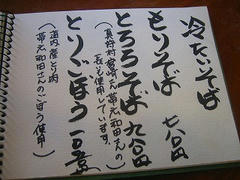 冷たいそば
もりそば 七八〇円
とろろそば 九八〇円
(真狩村宮崎さん 帯広和田さんの
長いも使用しています。)
とりごぼう
(道内産とり肉
帯広和田さんのごぼう使用)